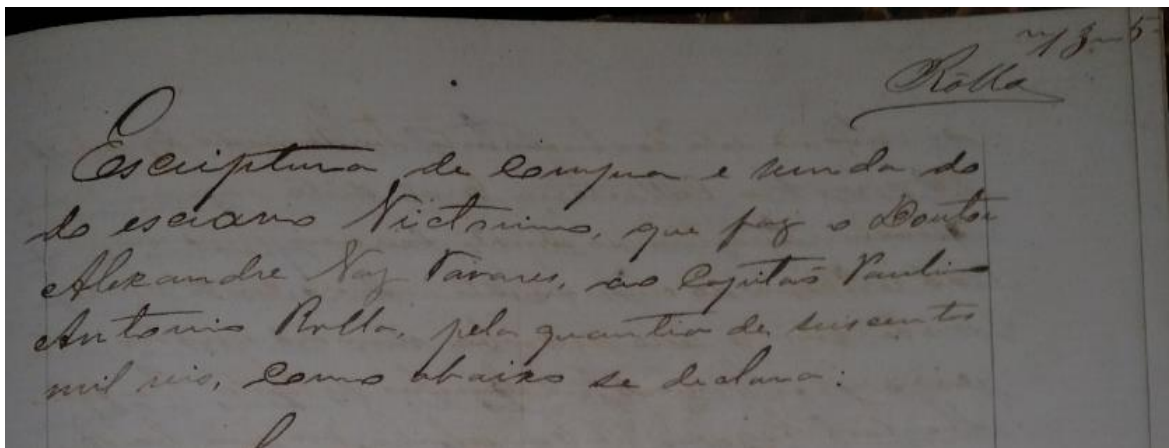 Rolla
Escriptura de compra e venda do
do escravo Victorino, que faz o Doutor
Alexandre Vaz Tavares, ao Capitão Paulino
Antonio Rolla, pela quantia de seiscentos
mil reis, como abaixo se declara: